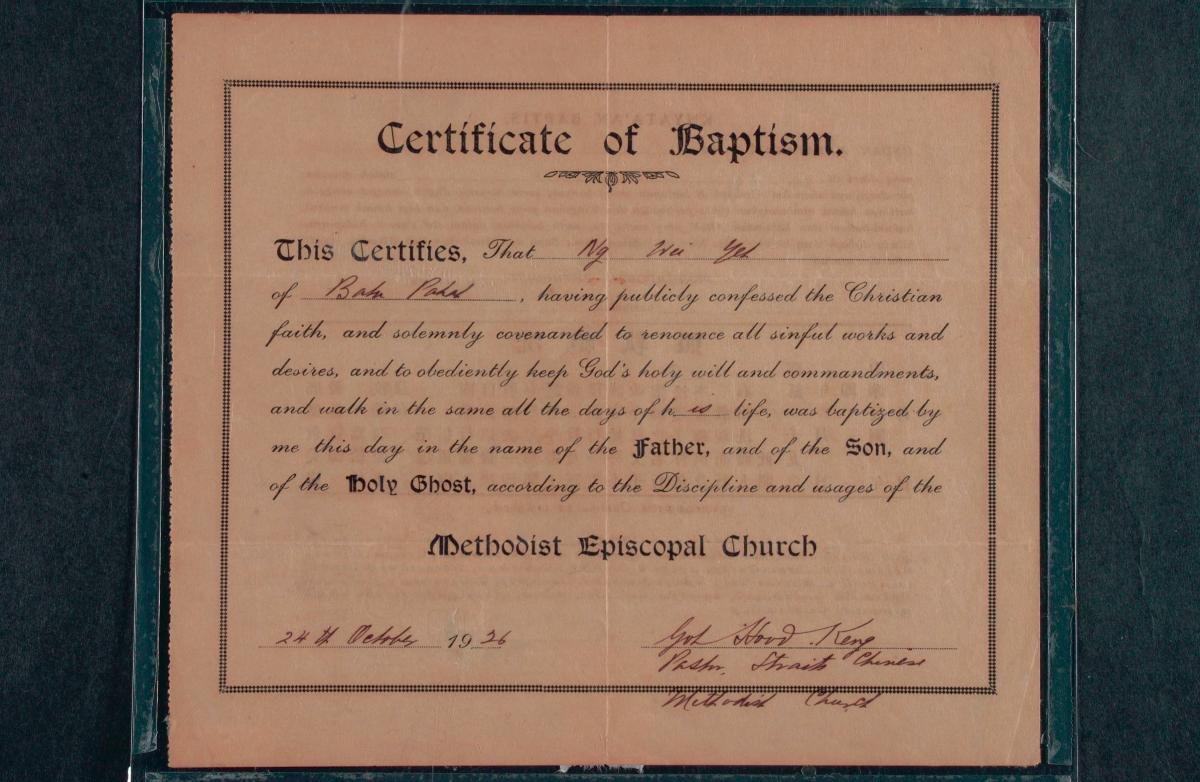 Certificate of Baptism.
This Certifies, That Ng Wei Yeh
of Batu Pahat, having publicly confessed the Christian
faith, and solemnly covenanted to renounce all sinful works and
desires, and to obediently keep God's holy will and commandments,
and walk in the same all the days of h is life, was baptized by
me this day in the name of the Father, and of the Son, and
of the Holy Ghost, according to the Discipline and usages of the
Methodist Episcopal Church
24th October 1926
Goh Hood Keng
Pastor, Straits Chinese
Methodist Church